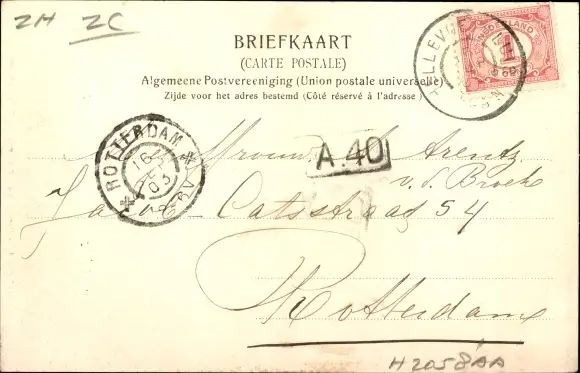 ZH ZC
BRIEFKAART
(CARTE POSTALE)
Algemeene Postvereeniging (Union postale universelle)
Zijde voor het adres bestemd (Côté réservé à l'adresse)
NEDERLAND
1
ROTTERDAM
16
03
A.40
Mevrouw Arentz
v. d. Broek
Jacob Catsstraat 54
Rotterdam
H2058AA